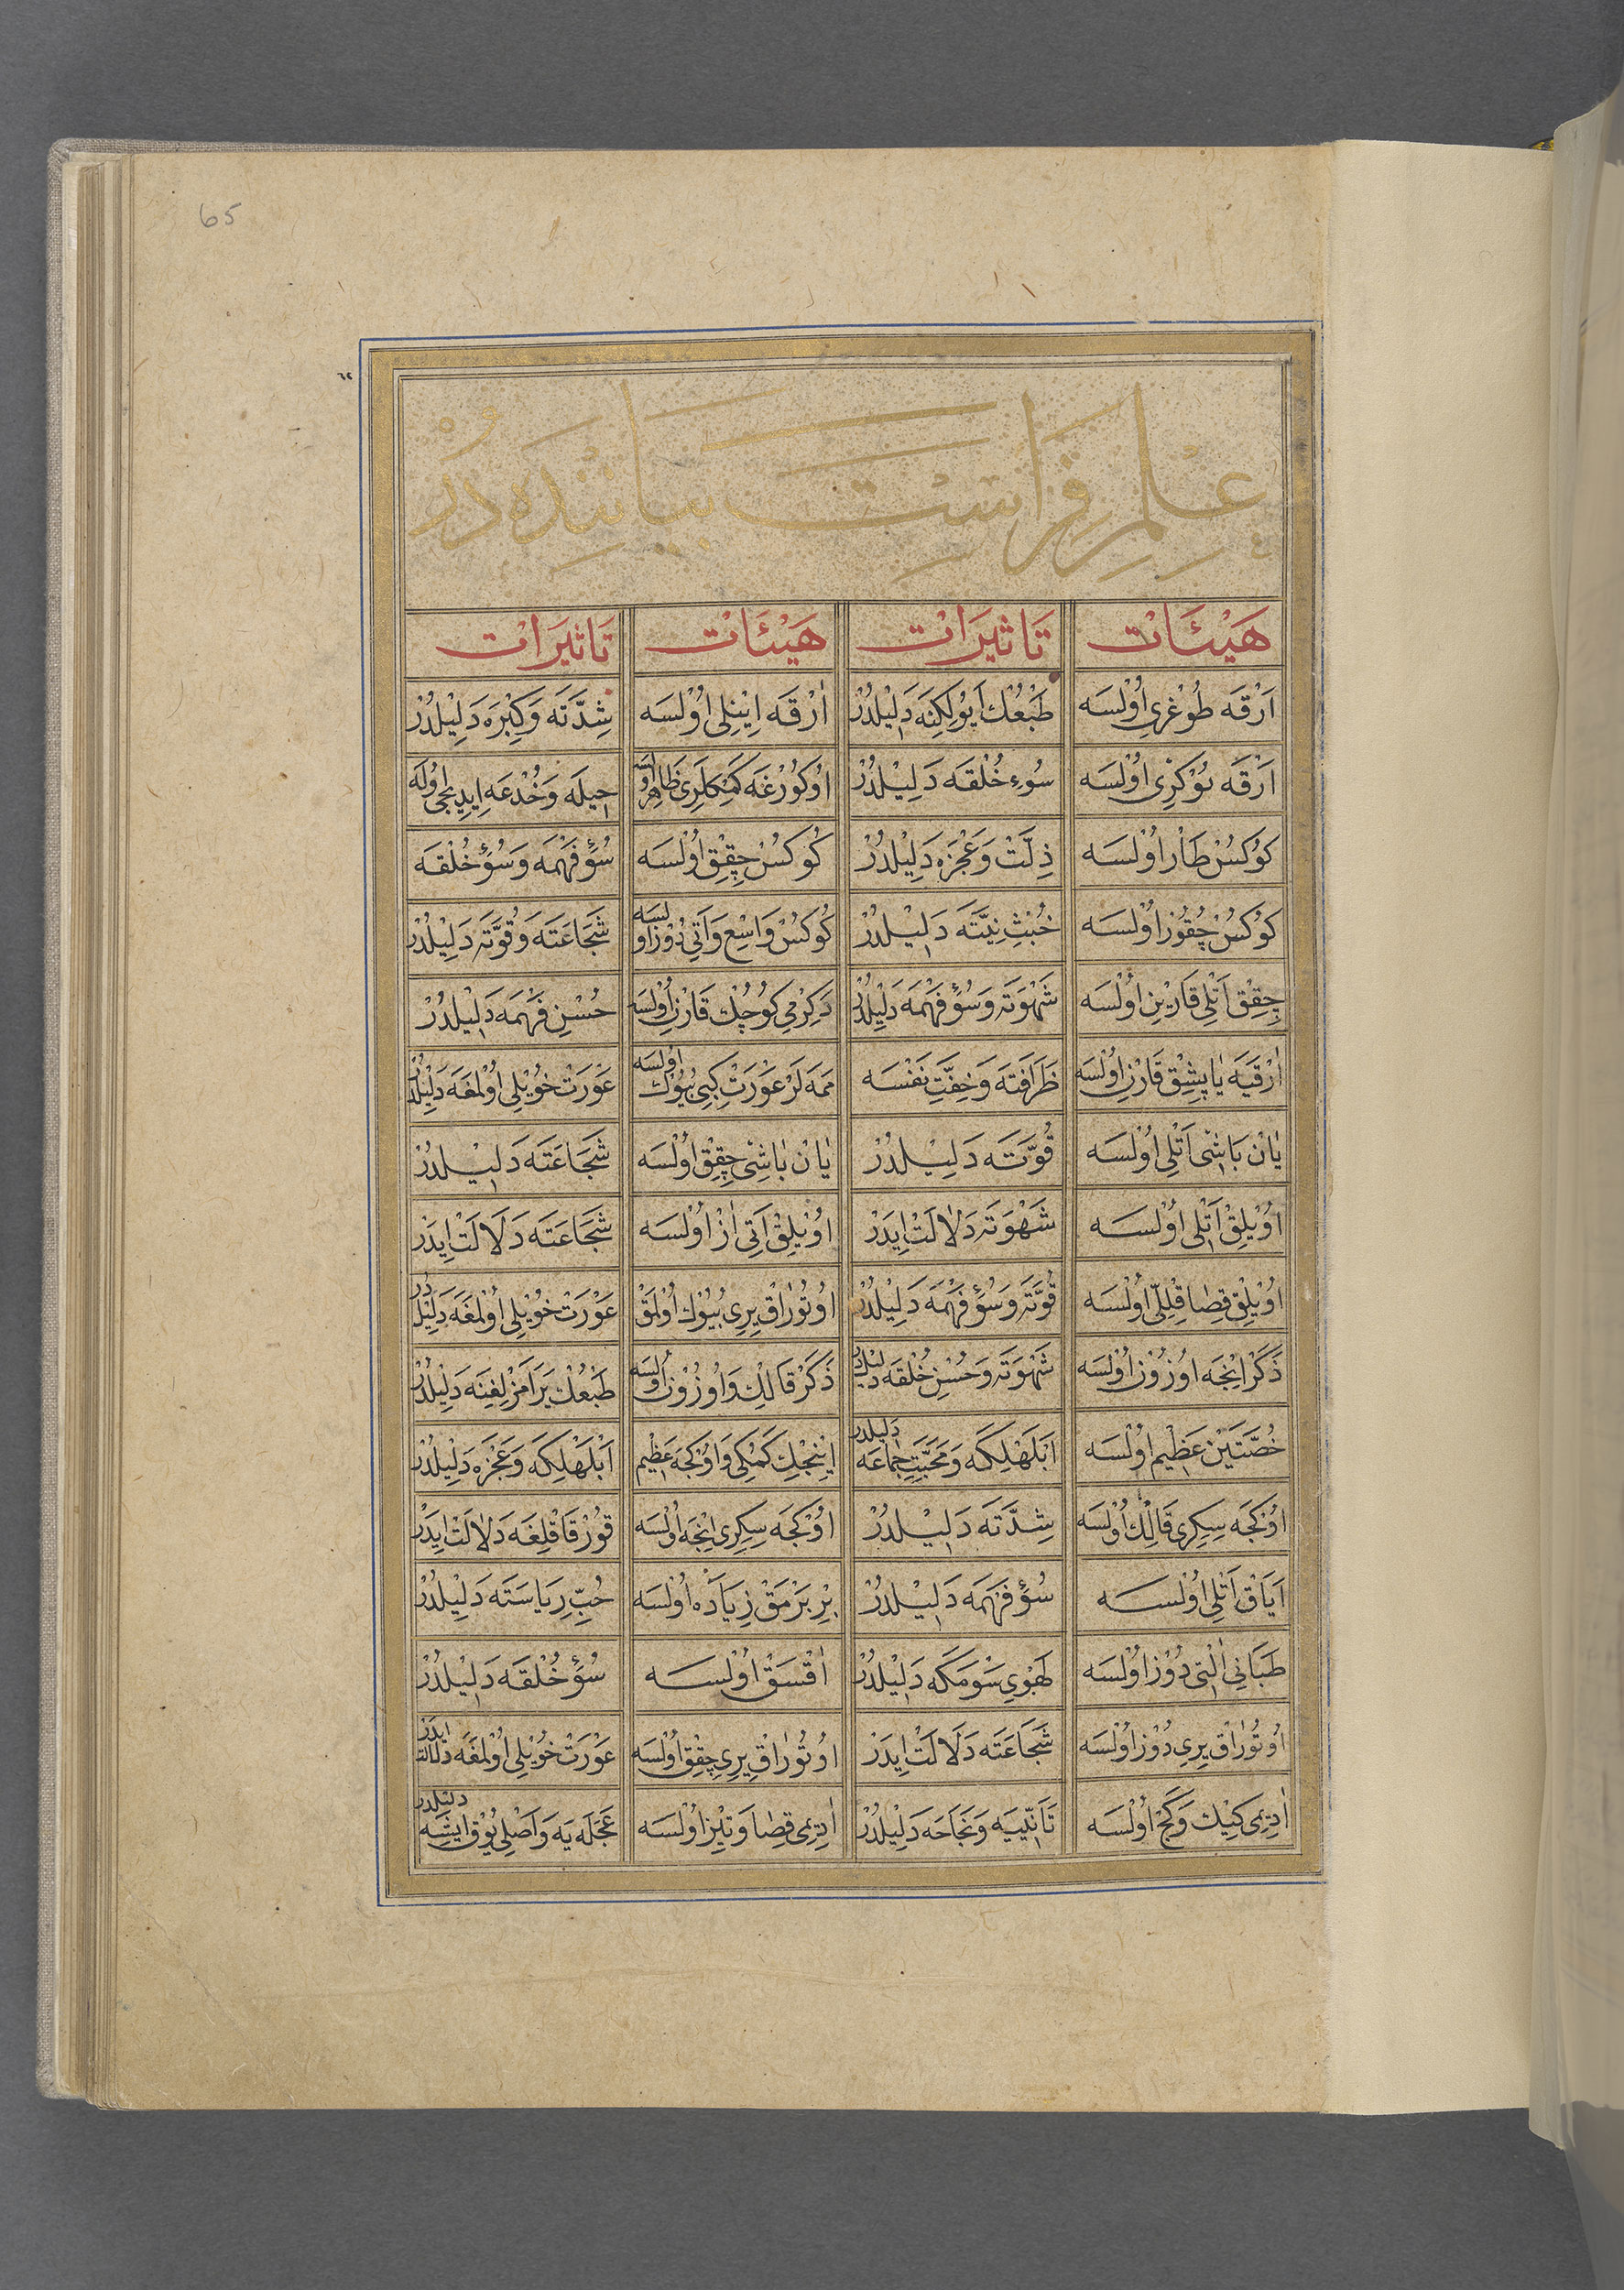 65
٦٢
علم فراست بیاننده در
هَیْئَاتْ تَاثیرَاتْ هَیْئَاتْ تَاثیرَاتْ
اَرْقَه طُوغْرِی اُولْسَه طَبْعُكْ اَیُولِكِنَه دَلِیلْدُرْ اَرْقَه اِینْلِی اُولْسَه شِدَّتَه وَكِبْرَه دَلِیلْدُرْ
اَرْقَه بُوكْرِی اُولْسَه سُوءِ خُلْقَه دَلِیلْدُرْ اُوكُورْغَه كَمِكْلَرِی ظَاهِر اُولْسَه حِیلَه وَخُدْعَه اِیدِیجِی اُولَه
كُوكُسْ طَارْ اُولْسَه ذِلَّتْ وَعَجْزَه دَلِیلْدُرْ كُوكُسْ چِقِقْ اُولْسَه سُوءِ فَهْمَه وَسُوءِ خُلْقَه
كُوكُسْ چُقُورْ اُولْسَه خُبْثِ نِیَّتَه دَلِیلْدُرْ كُوكُسْ وَاسِعْ وَاَتِی دُوزْ اُولْسَه شَجَاعَتَه وَقُوَّتَه دَلِیلْدُرْ
چِقِقْ اَتْلِی قَارِینْ اُولْسَه شَهْوَتَه وَسُوءِ فَهْمَه دَلِیلْدُرْ دَكِرْمِی كُوچُكْ قَارِنْ اُولْسَه حُسْنِ فَهْمَه دَلِیلْدُرْ
اَرْقَیَه یَاپِشِقْ قَارِنْ اُولْسَه ظَرَافَتَه وَخِفَّتِ نَفْسَه مَمَه لَرْ عَوْرَتْ كِبِی بُیُوكْ اُولْسَه عَوْرَتْ خُویْلِی اُولْمَغَه دَلِیلْدُرْ
یَانْ بَاشِی اَتْلِی اُولْسَه قُوَّتَه دَلِیلْدُرْ یَانْ بَاشِی چِقِقْ اُولْسَه شَجَاعَتَه دَلِیلْدُرْ
اُویْلِقْ اَتْلِی اُولْسَه شَهْوَتَه دَلَالَتْ اِیدَرْ اُویْلِقْ اَتِی اَزْ اُولْسَه شَجَاعَتَه دَلَالَتْ اِیدَرْ
اُویْلِقْ قِصَا قِلِلِّی اُولْسَه قُوَّتَه وَسُوءِ فَهْمَه دَلِیلْدُرْ اُوتُورَاقْ یِرِی بُیُوكْ اُولْمَقْ عَوْرَتْ خُویْلِی اُولْمَغَه دَلِیلْدُرْ
ذَكَرْ اِینْجَه اُوزُونْ اُولْسَه شَهْوَتَه وَحُسْنِ خُلْقَه دَلِیلْدُرْ ذَكَرْ قَالِكْ وَاُوزُونْ اُولْسَه طَبْعُكْ یَرَامَزْلِغِنَه دَلِیلْدُرْ
خُصْیَتَیْنْ عَظِیمْ اُولْسَه اَبْلَهْلِكَه وَمَحَبَّتِ جِمَاعَه دَلِیلْدُرْ اِینْجِكْ كَمِكِی وَاُوكْجَه عَظِیمْ اَبْلَهْلِكَه وَعَجْزَه دَلِیلْدُرْ
اُوكْجَه سِكِرِی قَالِكْ اُولْسَه شِدَّتَه دَلِیلْدُرْ اُوكْجَه سِكِرِی اِینْجَه اُولْسَه قُورْقَاقْلِغَه دَلَالَتْ اِیدَرْ
اَیَاقْ اَتْلِی اُولْسَه سُوءِ فَهْمَه دَلِیلْدُرْ بِرْ بَرْمَقْ زِیَادَه اُولْسَه حُبِّ رِیَاسَتَه دَلِیلْدُرْ
طَبَانِی اَلْتِی دُوزْ اُولْسَه لَهْوِی سَوْمَكَه دَلِیلْدُرْ اَقْسَقْ اُولْسَه سُوءِ خُلْقَه دَلِیلْدُرْ
اُوتُورَاقْ یِرِی دُوزْ اُولْسَه شَجَاعَتَه دَلَالَتْ اِیدَرْ اُوتُورَاقْ یِرِی چِقِقْ اُولْسَه عَوْرَتْ خُویْلِی اُولْمَغَه دَلَالَتْ اِیدَرْ
اَدِیمِی كِیكْ وَكَجْ اُولْسَه تَاَنِّیَیه وَنَجَاحَه دَلِیلْدُرْ اَدِیمِی قِصَا وَتِیزْ اُولْسَه عَجَلَه یَه وَاَصْلِی یُوقْ اِیشَه دَلِیلْدُرْ